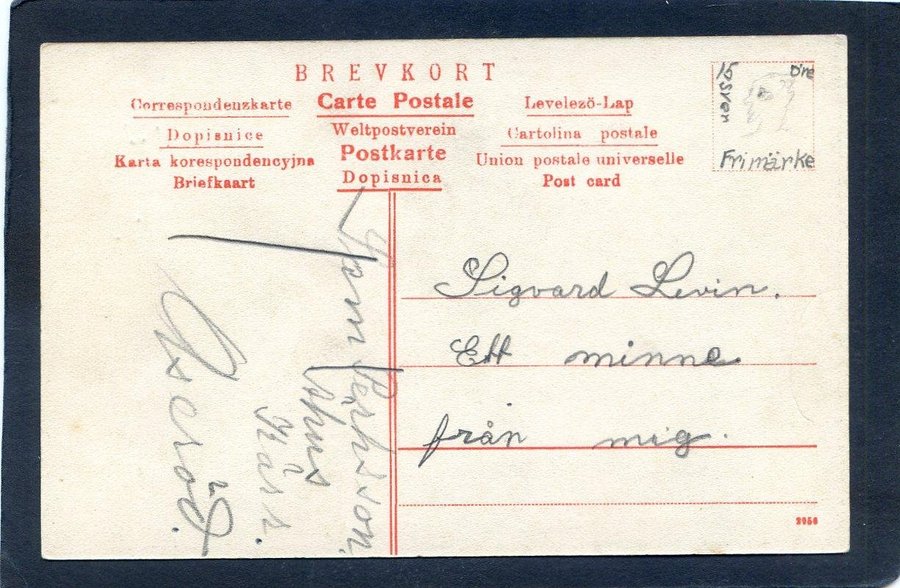 BREVKORT
Correspondenzkarte
Dopisnice
Karta korespondencyjna
Briefkaart
Carte Postale
Weltpostverein
Postkarte
Dopisnica
Levelező-Lap
Cartolina postale
Union postale universelle
Post card
15 öre
Sven
Frimärke
Sigvard Levin.
Ett minne
från mig.
2956